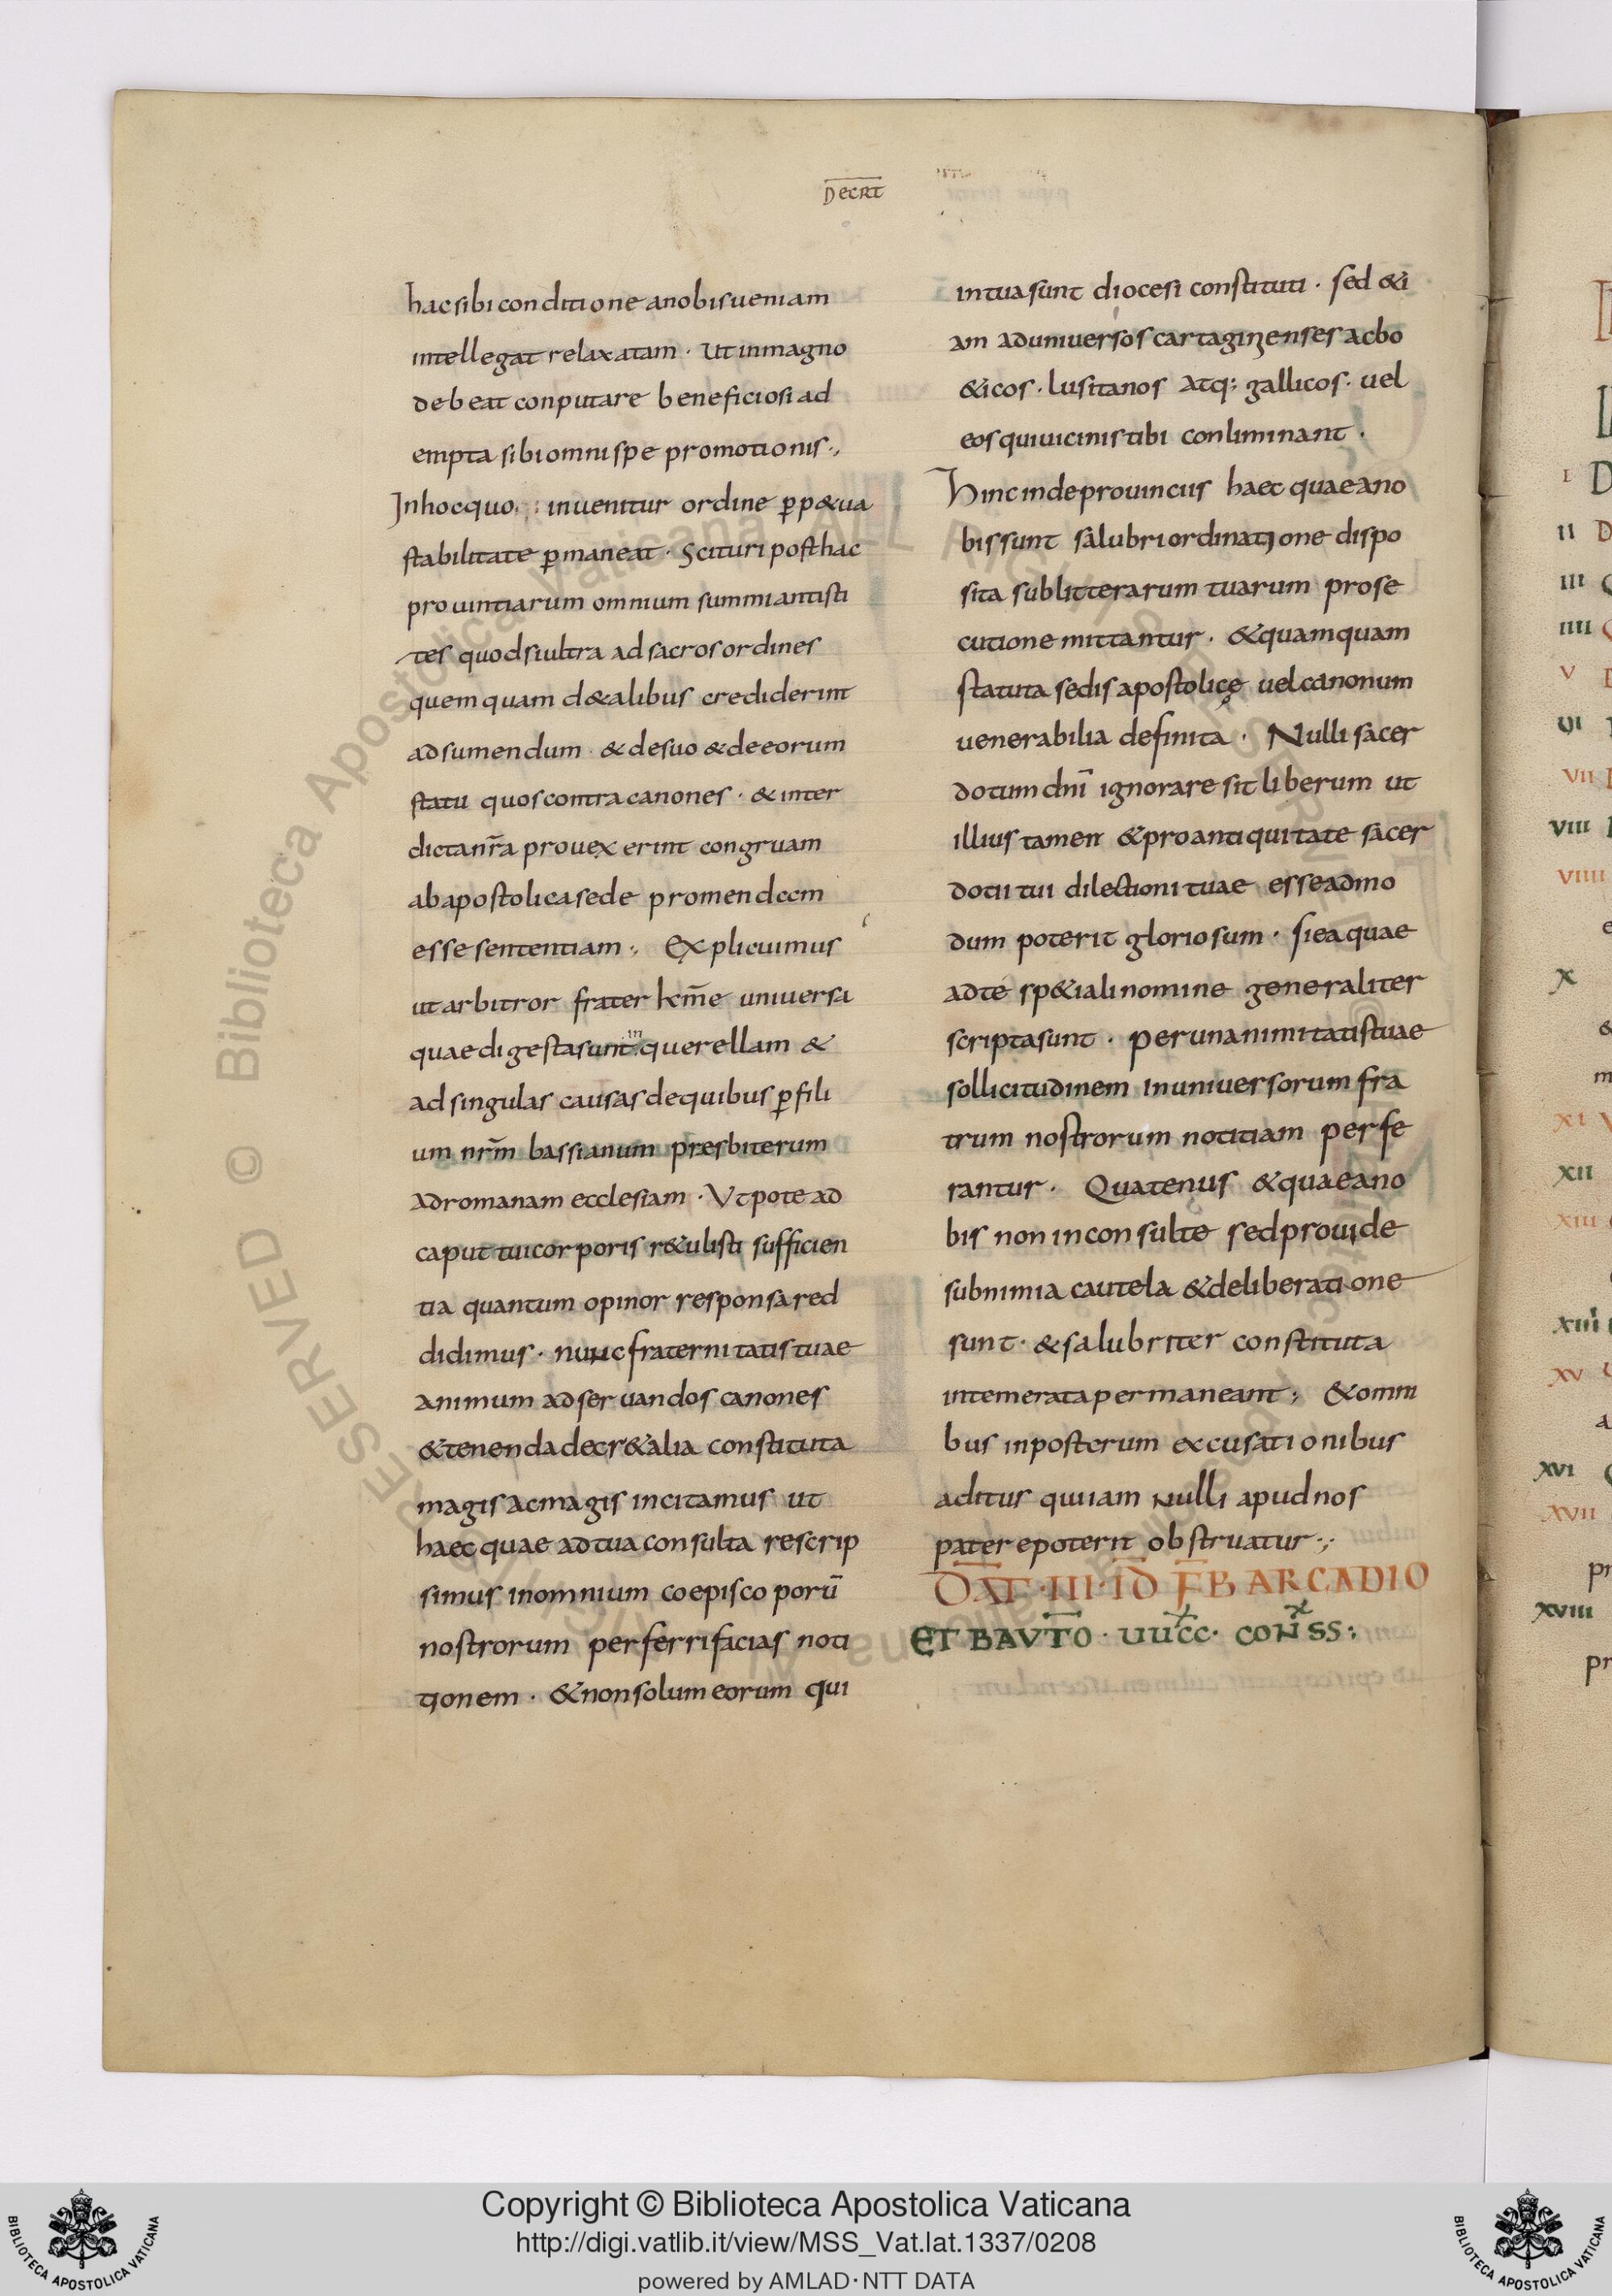 DECRT
hac sibi conditione a nobis ueniam
intellegat relaxatam · ut in magno
debeat conputare beneficio si ad
empta sibi omni spe promotionis·,
In hoc quo inuenitur ordine p̲p&ua
stabilitate p̲maneat · Scituri posthac
prouintiarum omnium summi antisti
tes quod si ultra ad sacros ordines
quemquam d& alibus crediderint
adsumendum · & de suo & de eorum
statu quos contra canones · & inter
dicta nr̄a prouexerint congruam
ab apostolica sede promendam
esse sententiam ; Explicuimus
ut arbitror frater km̄e uniuersa
quae digesta sunt in querellam &
ad singulas causas de quibus p̲ fili
um nr̄m bassianum presbiterum
ad romanam ecclesiam · Vt pote ad
caput tui corporis r&ulisti sufficien
tia quantum opinor responsa red
didimus · nunc fraternitatis tuae
animum ad seruandos canones
& tenenda decr&alia constituta
magis ac magis incitamus ut
haec quae ad tua consulta rescrip
simus in omnium coepiscoporū
nostrorum perferri facias noti
tionem · & non solum eorum qui
in tua sunt diocesi constituti · sed &i
am ad uniuersos cartaginenses ac bo
&icos · lusitanos atq; gallicos · uel
eos qui uicinis tibi conliminant ·
hinc inde prouinciis haec quae a no
bis sunt salubri ordinatione dispo
sita sub litterarum tuarum prose
cutione mittantur · & quamquam
statuta sedis apostolicę uel canonum
uenerabilia definita · Nulli sacer
dotum dn̄i ignorare sit liberum ut
illius tamen & pro antiquitate sacer
dotii tui dilectioni tuae esse admo
dum poterit gloriosum · si ea quae
ad te sp&iali nomine generaliter
scripta sunt · per unanimitatis tuae
sollicitudinem in uniuersorum fra
trum nostrorum notitiam perfe
rantur · Quatenus & quae a no
bis non inconsulte sed prouide
sub nimia cautela & deliberatione
sunt · & salubriter constituta
intemerata permaneant ; & omni
bus in posterum excusationibus
aditus qui iam nulli apud nos
patere poterit obstruatur ·;
DAT̄ · III · ID̄ F̄B ARCADIO
ET BAVTO · UUCC · CONSS ;
I
II
III
IIII
V
VI
VII
VIII
VIIII
X
XI
XII
XIII
XIIII
XV
XVI
XVII
XVIII
© Biblioteca Apostolica Vaticana ALL RIGHTS RESERVED
Copyright © Biblioteca Apostolica Vaticana
http://digi.vatlib.it/view/MSS_Vat.lat.1337/0208
powered by AMLAD·NTT DATA
BIBLIOTECA APOSTOLICA VATICANA
BIBLIOTECA APOSTOLICA VATICANA